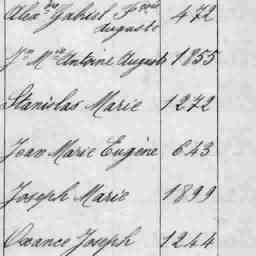 Alexdre Gabriel Fçois 472
Auguste
Jn Mie Antoine Auguste 1855
Stanislas Marie 1272
Jean Marie Eugène 643
Joseph Marie 1899
Ovance Joseph 1244